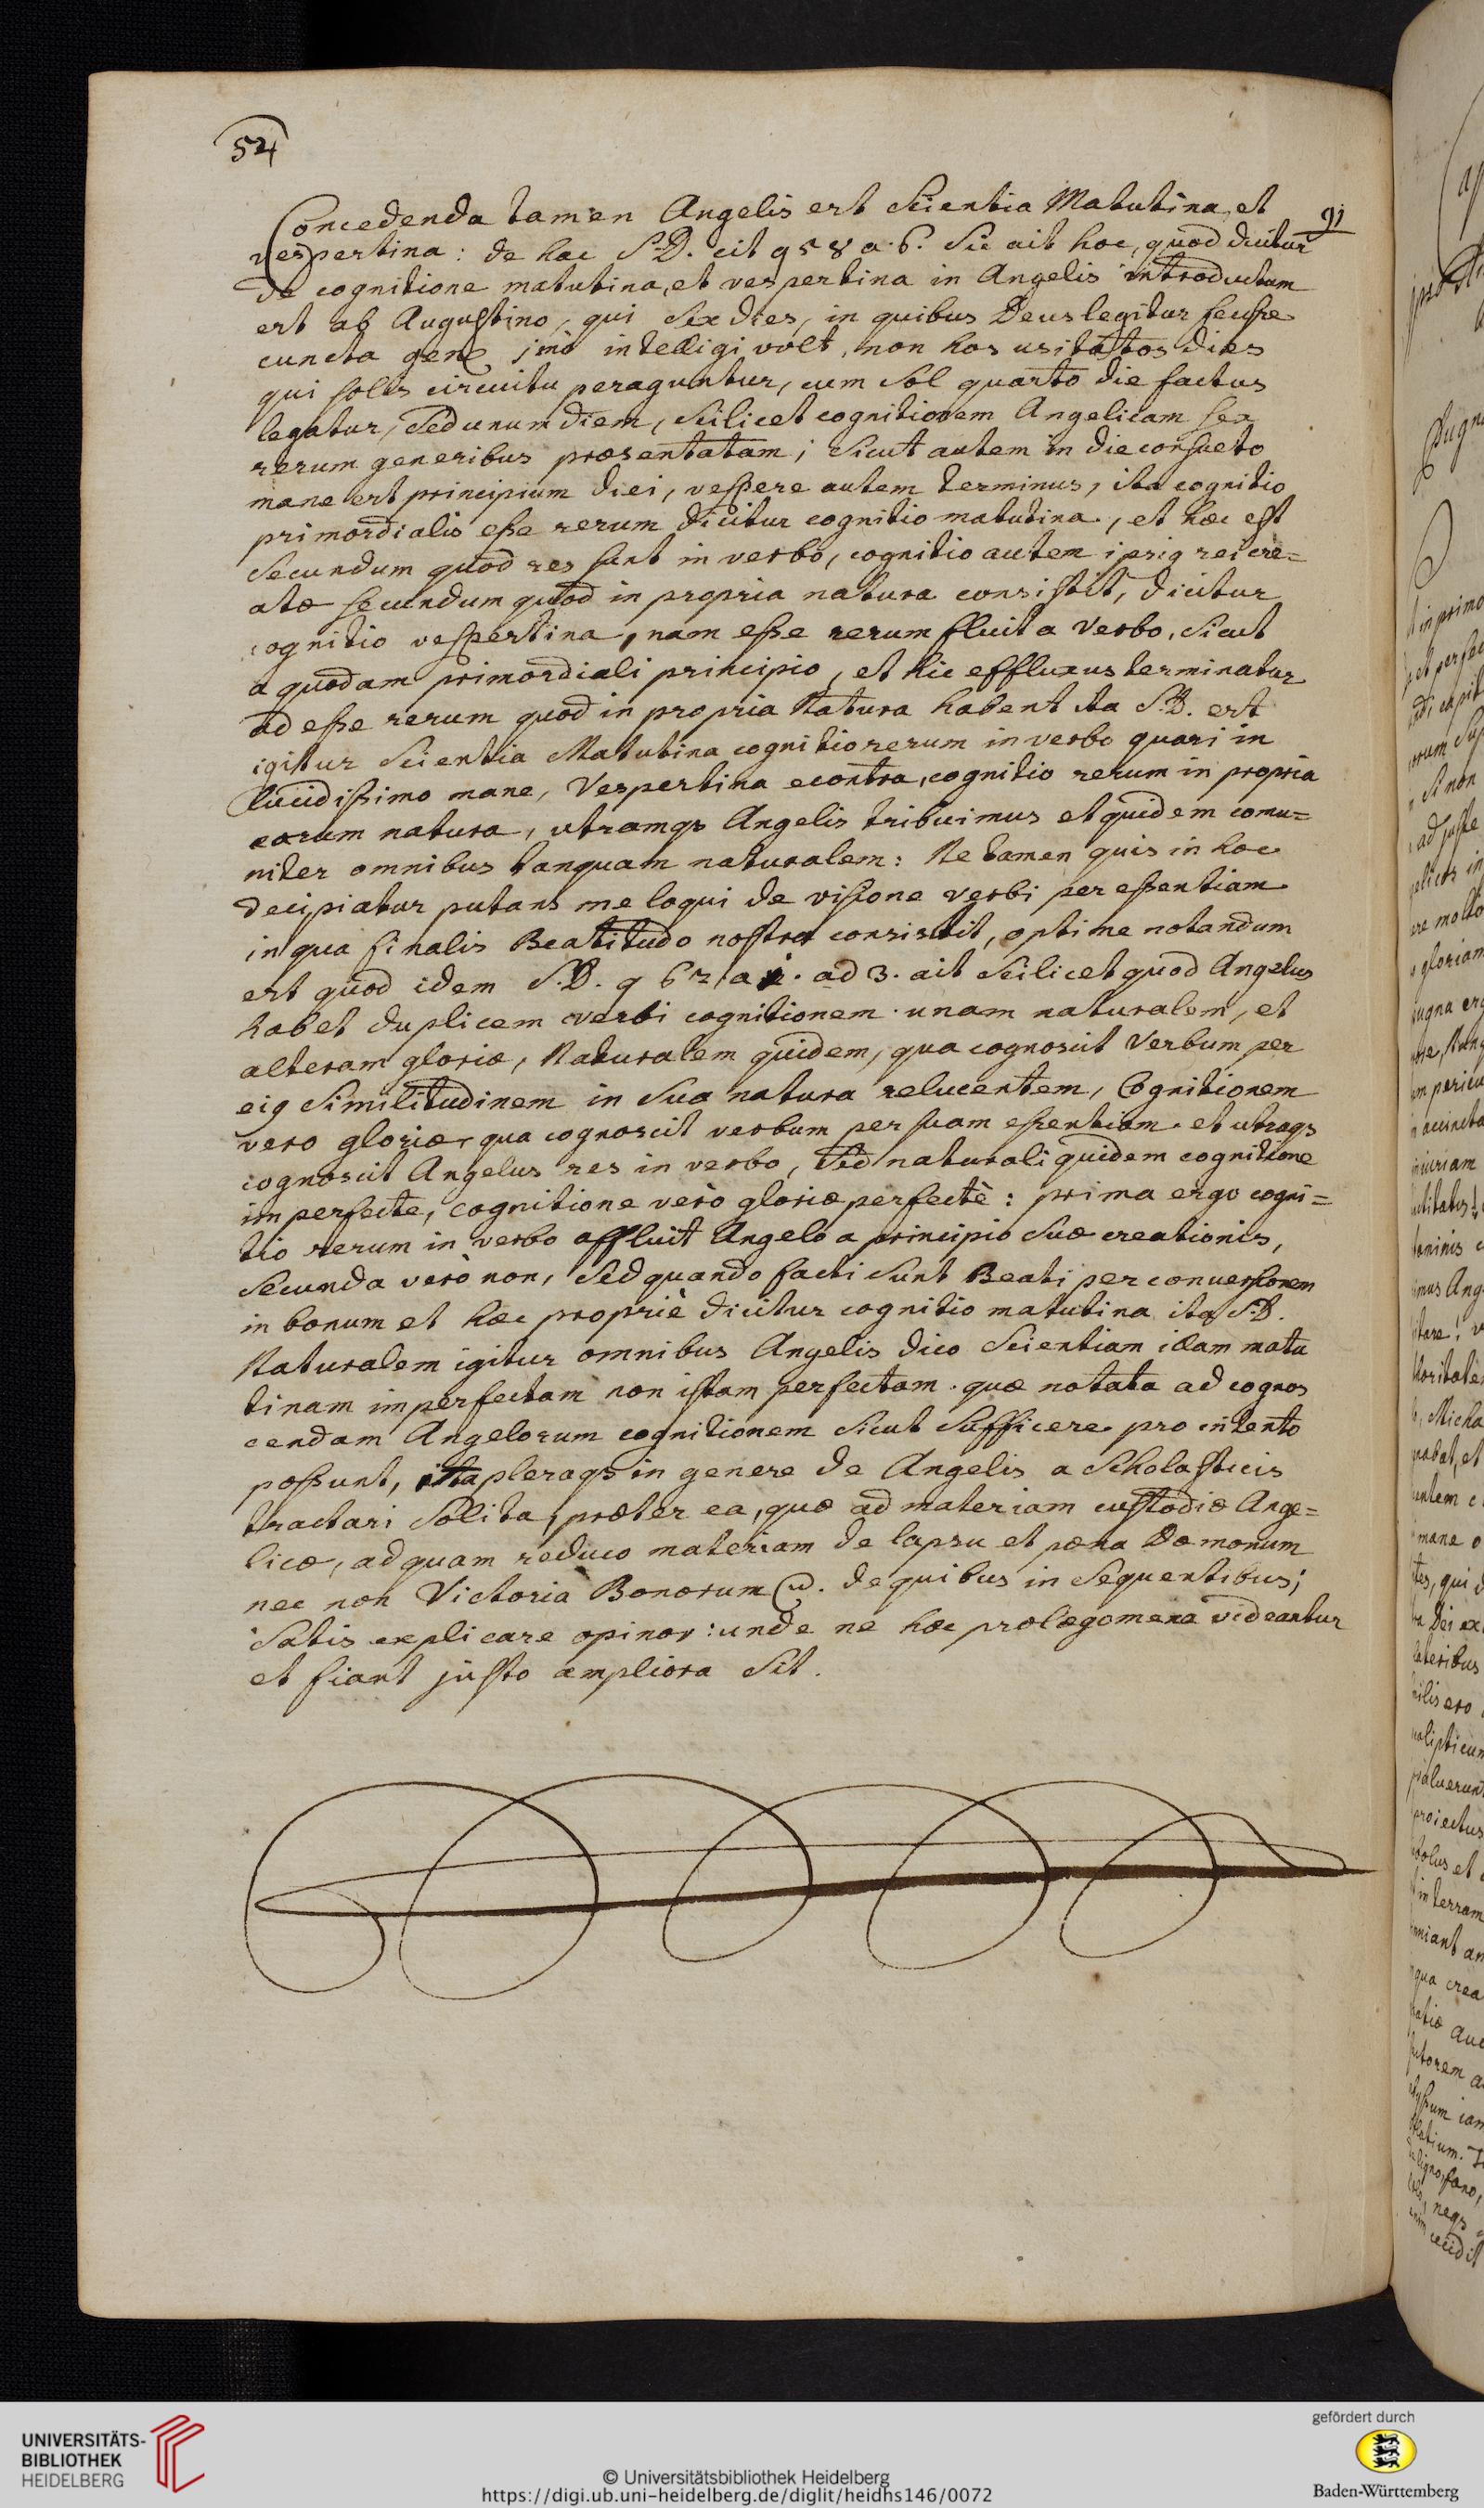 54
Concedenda tamen Angelis est Scientia Matutina, et
91
vespertina: de hac S.D. cit q 58 a. 6. Sic ait hoc, quod dicitur
de cognitione matutina, et vespertina in Angelis introductum
est ab Augustino, qui sex dies, in quibus Deus legitur fecisse
cuncta gene imo intelligi volt, non hos usitatos dies
qui solis circuitu peraguntur, cum Sol quarto die factus
legatur, sed unum diem, scilicet cognitionem Angelicam sex
rerum generibus præsentatam; sicut autem in die consueto
mane est principium diei, vespere autem terminus, ita cognitio
primordialis esse rerum dicitur cognitio matutina, et hæc est
secundum quod res sunt in verbo, cognitio autem ipsig rei cre=
atæ secundum quod in propria natura consistit, dicitur
cognitio vespertina, nam esse rerum fluit a Verbo, sicut
a quodam primordiali principio, et hic effluxus terminatur
ad esse rerum quod in propria Natura habent ita S.D. est
igitur Scientia Matutina cognitio rerum in verbo quasi in
lucidissimo mane, Vespertina econtra, cognitio rerum in propria
earum natura, utramqs Angelis tribuimus et quidem comu=
niter omnibus tanquam naturalem: Ne tamen quis in hoc
decipiatur putans me loqui de visione verbi per essentiam
in qua finalis Beatitudo nostra consistit, optime notandum
est quod idem S.D. q 62 a 1. ad 3. ait scilicet quod Angelus
habet duplicem verbi cognitionem unam naturalem, et
alteram gloriæ, Naturalem quidem, qua cognoscit Verbum per
eig similitudinem in sua natura relucentem, Cognitionem
vero gloriæ, qua cognoscit verbum per suam essentiam et utraqs
cognoscit Angelus res in verbo, sed naturali quidem cognitione
imperfecte, cognitione verò gloriæ perfectè: prima ergo cogni=
tio rerum in verbo affluit Angelo a principio suæ creationis,
secunda verò non, sed quando facti sunt Beati per conversionem
in bonum et hæc propriè dicitur cognitio matutina ita S.D.
Naturalem igitur omnibus Angelis dico Scientiam illam matu
tinam imperfectam non istam perfectam. quæ notata ad cognos
cendam Angelorum cognitionem sicut sufficere pro intento
possunt, ita pleraqs in genere de Angelis a Scholasticis
tractari solita, præter ea, quæ ad materiam custodiæ Ange=
licæ, ad quam reduco materiam de lapsu et pœna Dæmonum
nec non Victoria Bonorum de quibus in sequentibus;
satis explicare opinor: unde ne hæc prolægomena videantur
et fiant justo ampliora sit.
UNIVERSITÄTS-
BIBLIOTHEK
HEIDELBERG
© Universitätsbibliothek Heidelberg
https://digi.ub.uni-heidelberg.de/diglit/heidhs146/0072
gefördert durch
Baden-Württemberg